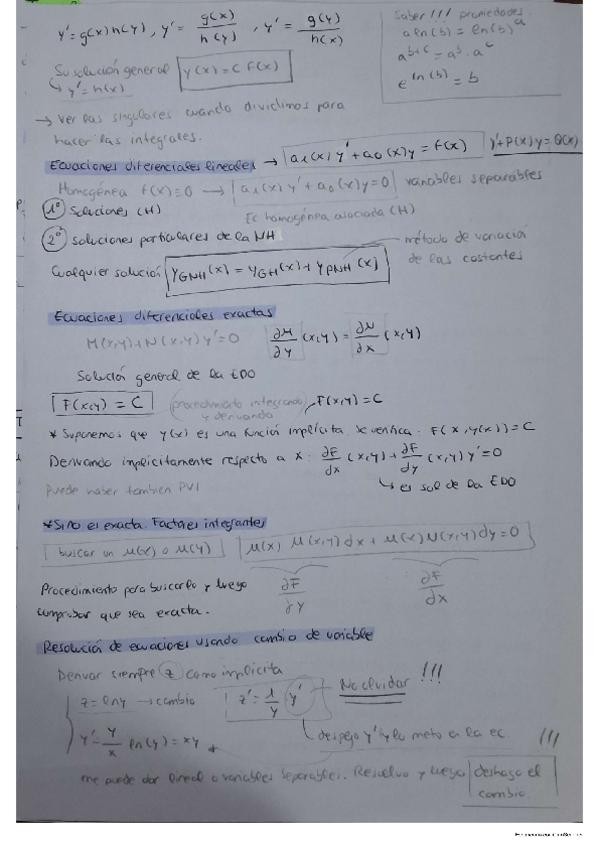 y' = g(x) h(y), y' = g(x)/h(y), y' = g(y)/h(x)
Saber!!! propiedades.
a ln(b) = ln(b)^a
a^(b+c) = a^b · a^c
e^(ln(b)) = b
Su solución general y(x) = C f(x)
↳ y' = h(x)
→ Ver las singulares cuando dividimos para
hacer las integrales.
Ecuaciones diferenciales lineales → a₁(x) y' + a₀(x) y = f(x) y' + P(x) y = Q(x)
Homogénea f(x) = 0 → a₁(x) y' + a₀(x) y = 0 variables separables
1º Soluciones (H) Ec homogénea asociada (H)
2º Soluciones particulares de la NH
método de variación
de las costantes
Cualquier solución y_GNH(x) = y_GH(x) + y_PNH(x)
Ecuaciones diferenciales exactas
M(x,y) + N(x,y) y' = 0 ∂M/∂y (x,y) = ∂N/∂x (x,y)
Solución general de la EDO
F(x,y) = C (procedimiento integrando y derivando) F(x,y) = C
* Suponemos que y(x) es una función implícita se verifica. F(x, y(x)) = C
Derivando implicitamente respecto a x. ∂F/dx (x,y) + ∂F/dy (x,y) y' = 0
↳ es sol de la EDO
Puede haber tambien PVI
* Si no es exacta. Factores integrantes
buscar un μ(x) o μ(y) μ(x) M(x,y) dx + μ(x) N(x,y) dy = 0
Procedimiento para buscarlo y luego
comprobar que sea exacta.
∂F/∂y ∂F/dx
Resolución de ecuaciones usando cambio de variable
Derivar siempre z como implicita
z = ln y → cambio z' = 1/y y' No olvidar!!!
y' = y/x ln(y) = xy
↳ despejo y' y lo meto a la ec. !!!
me puede dar lineal o variables separables. Resuelvo y luego deshago el
cambio.